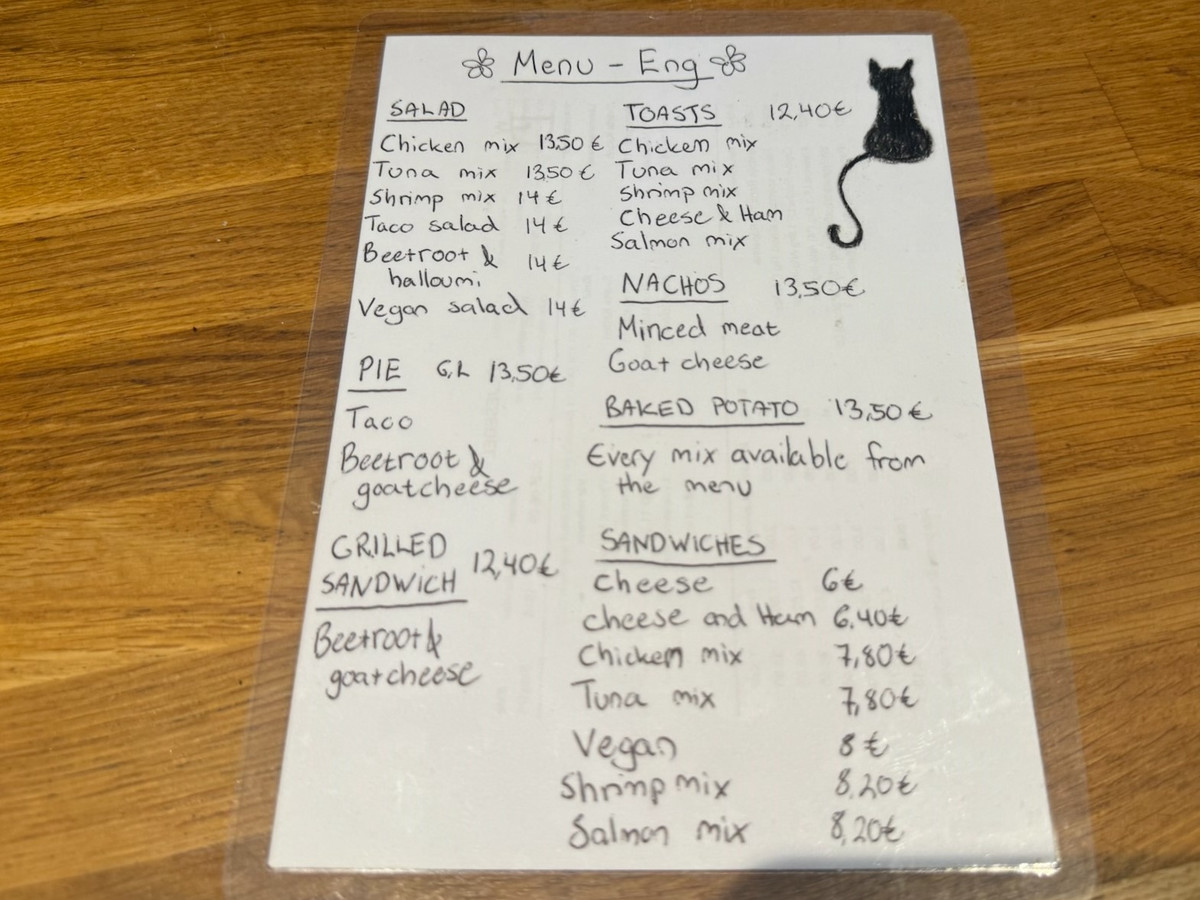 Menu - Eng
SALAD
Chicken mix 13,50 €
Tuna mix 13,50 €
Shrimp mix 14 €
Taco salad 14 €
Beetroot & 14 €
halloumi
Vegan salad 14 €
PIE G,L 13,50€
Taco
Beetroot &
goatcheese
GRILLED
SANDWICH 12,40€
Beetroot &
goatcheese
TOASTS 12,40€
Chicken mix
Tuna mix
Shrimp mix
Cheese & Ham
Salmon mix
NACHOS 13,50€
Minced meat
Goat cheese
BAKED POTATO 13,50€
Every mix available from
the menu
SANDWICHES
Cheese 6€
cheese and Ham 6,40€
Chicken mix 7,80€
Tuna mix 7,80€
Vegan 8 €
Shrimp mix 8,20€
Salmon mix 8,20€